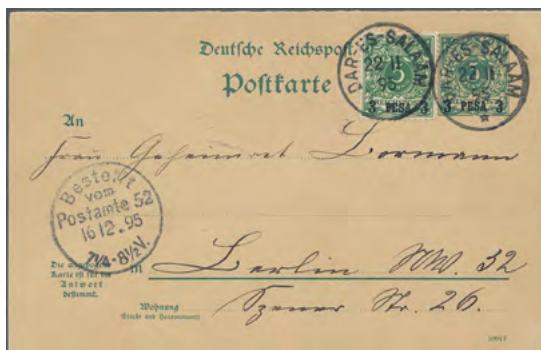 Deutsche Reichspost
Postkarte
DAR-ES-SALAAM
22 11
95
3 PESA 3
DAR-ES-SALAAM
22 11
95
3 PESA 3
An
Frau Geheimrat Bormann
Bestellt
vom
Postamte 52
16 12. 95
7¼-8½V.
Die angebogene
Karte ist für die
Antwort
bestimmt.
in Berlin NW. 32
Wohnung
(Straße und Hausnummer)
Str. 26.